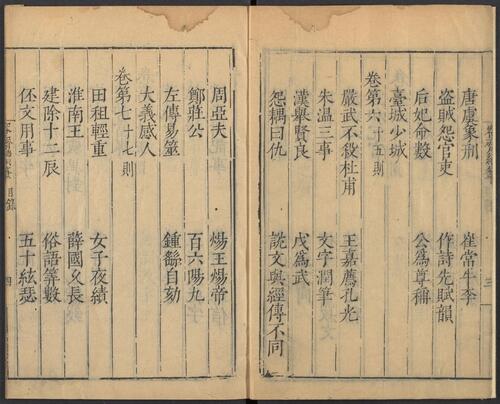 唐虞象刑 崔常牛李
盜賊怨官吏 作詩先賦韻
后妃命數 公爲尊稱
臺城少城
卷第六 十五則
嚴武不殺杜甫 王嘉薦孔光
朱温三事 文字潤筆
漢舉賢良 戊爲武
怨耦曰仇 說文與經傳不同
周亞夫 煬王煬帝
鄭莊公 百六陽九
左傳易筮 鍾繇自劾
大義感人
卷第七 十七則
田租輕重 女子夜績
淮南王 薛國久長
建除十二辰 俗語筭數
伾文用事 五十絃瑟
目錄 四